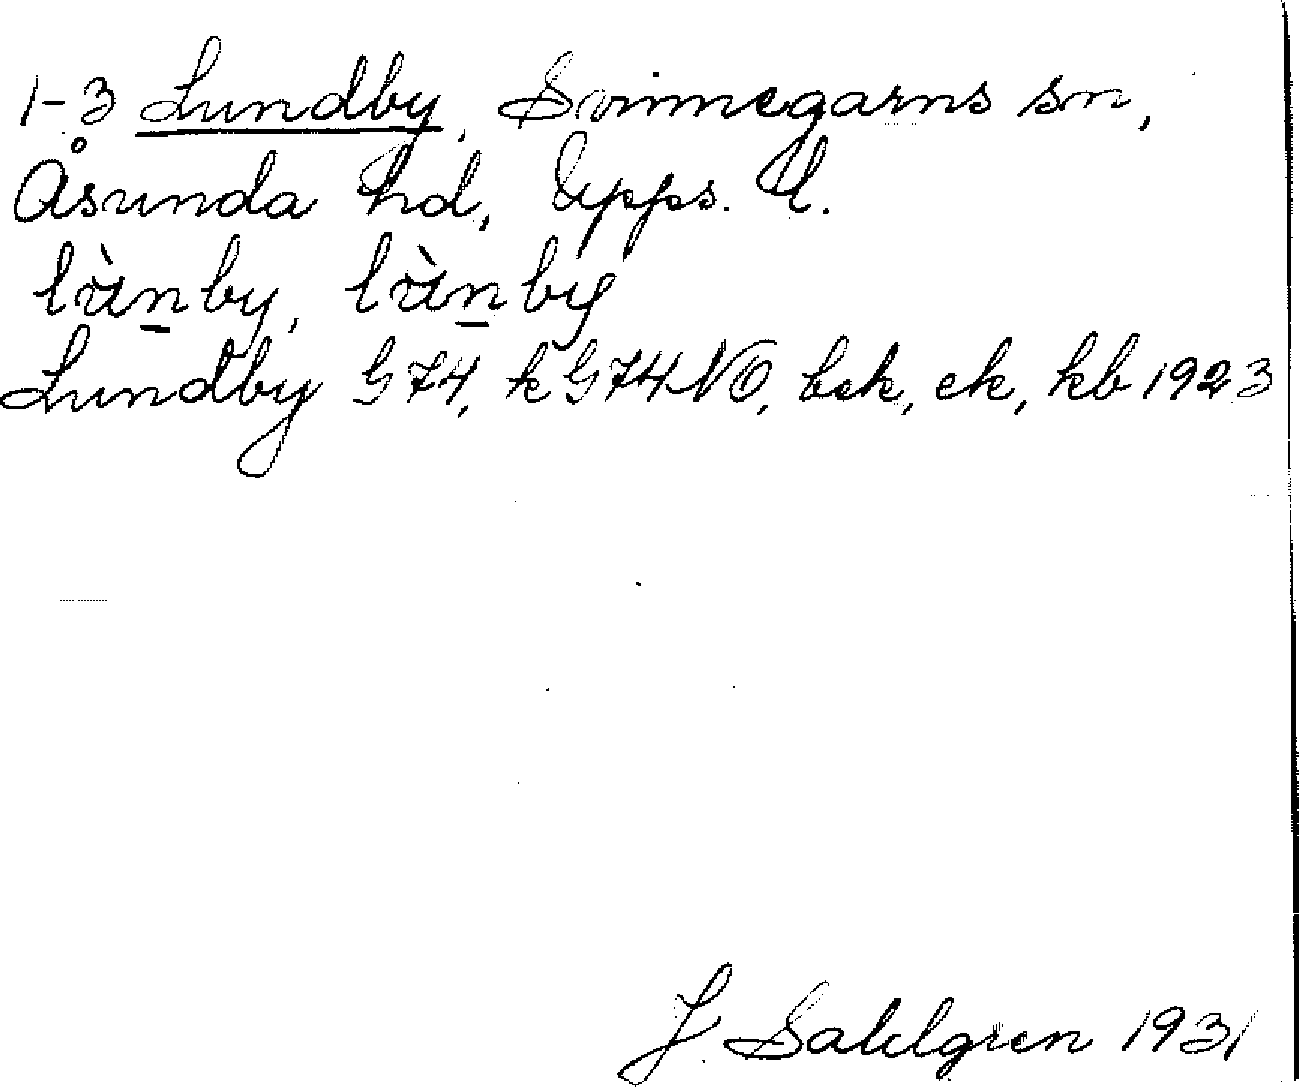 1-3 Lundby, Svinnegarns sn,
Åsunda hd, Upps. l.
Lundby G74, k G74NO, bek, ek, kb 1923
J. Sahlgren 1931